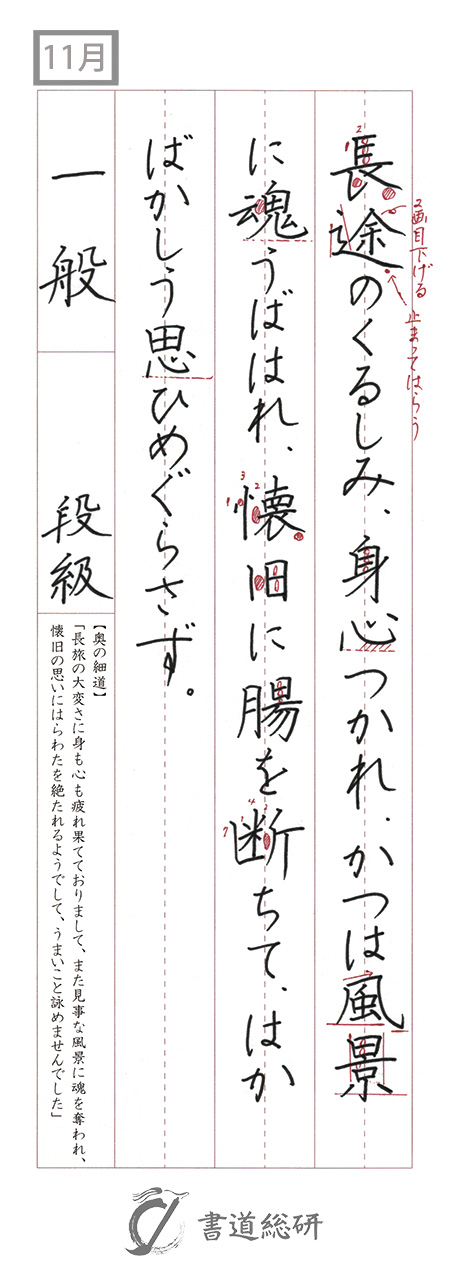 11月
2画目下げる
止まってはらう
長途のくるしみ、身心つかれ、かつは風景
に魂うばはれ、懐旧に腸を断ちて、はか
ばかしう思ひめぐらさず。
一般
段級
【奥の細道】
「長旅の大変さに身も心も疲れ果てておりまして、また見事な風景に魂を奪われ、
懐旧の思いにはらわたを絶たれるようでして、うまいこと詠めませんでした」
書道総研